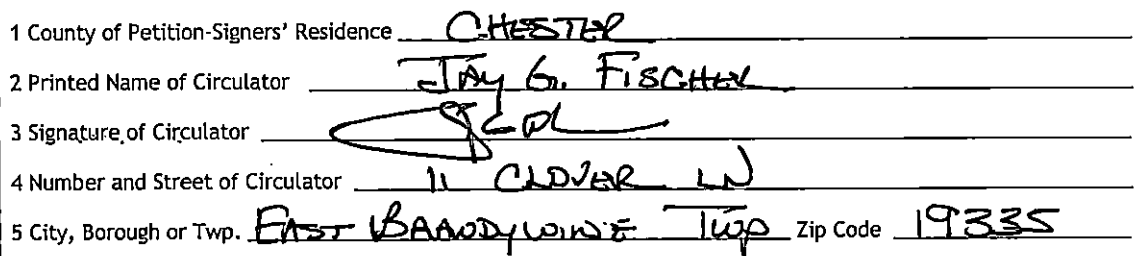 1 County of Petition-Signers' Residence CHESTER
2 Printed Name of Circulator JAY G. FISCHER
3 Signature of Circulator
4 Number and Street of Circulator 11 CLOVER LN
5 City, Borough or Twp. EAST BRANDYWINE TWP Zip Code 19335